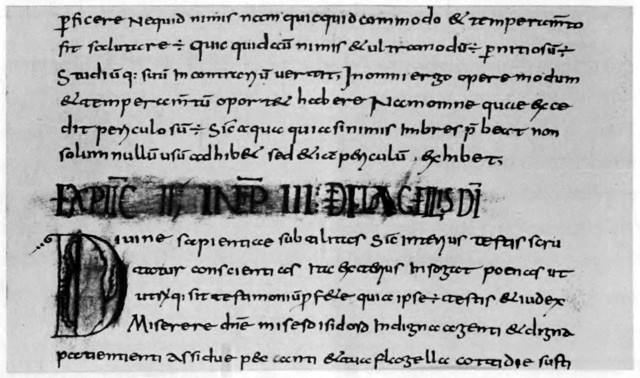 ꝑficere Nequid nimis nam quicquid commodo & temperam̄to
fit salutare ÷ Quicquid aū nimis & ultramodū ÷ ꝑnitiosū ÷
Studiūq: suū Incontrariū vertit. Inomni ergo opere modum
& temperam̄tū oport& habere Namomne quae exce
dit periculosū ÷ Sic aqua quia sinimis Imbres p̄beat non
solum nullū usū adhib& sed &iā periculū . exhibet.
EXPLIC̄ II, INCP̄ III: DE FLAGELLIS DĪ
Divine sapientiae subtilitas Sic Interius testis scru
tatur conscientias Ita exterius Inrogat poenas ut
sit testimoniū quia ipse ÷ testis & iudex
Miserere dn̄e misero isidoro Indigna agenti & digna
patientienti Assidue peccanti & tua flagella cottidie susti